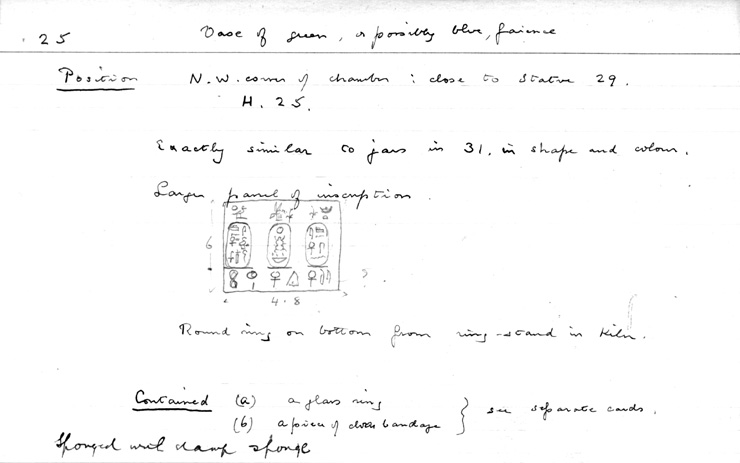 25 Vase of green, or possibly blue, faience
Position N.W. corner of chamber : close to statue 29.
H. 25.
Exactly similar to jars in 31, in shape and colour.
Larger, panel of inscription.
6
?
4.8
Round ring on bottom from ring-stand in kiln.
Contained (a) a glass ring
(b) a piece of cloth bandage } see separate cards.
Sponged with damp sponge